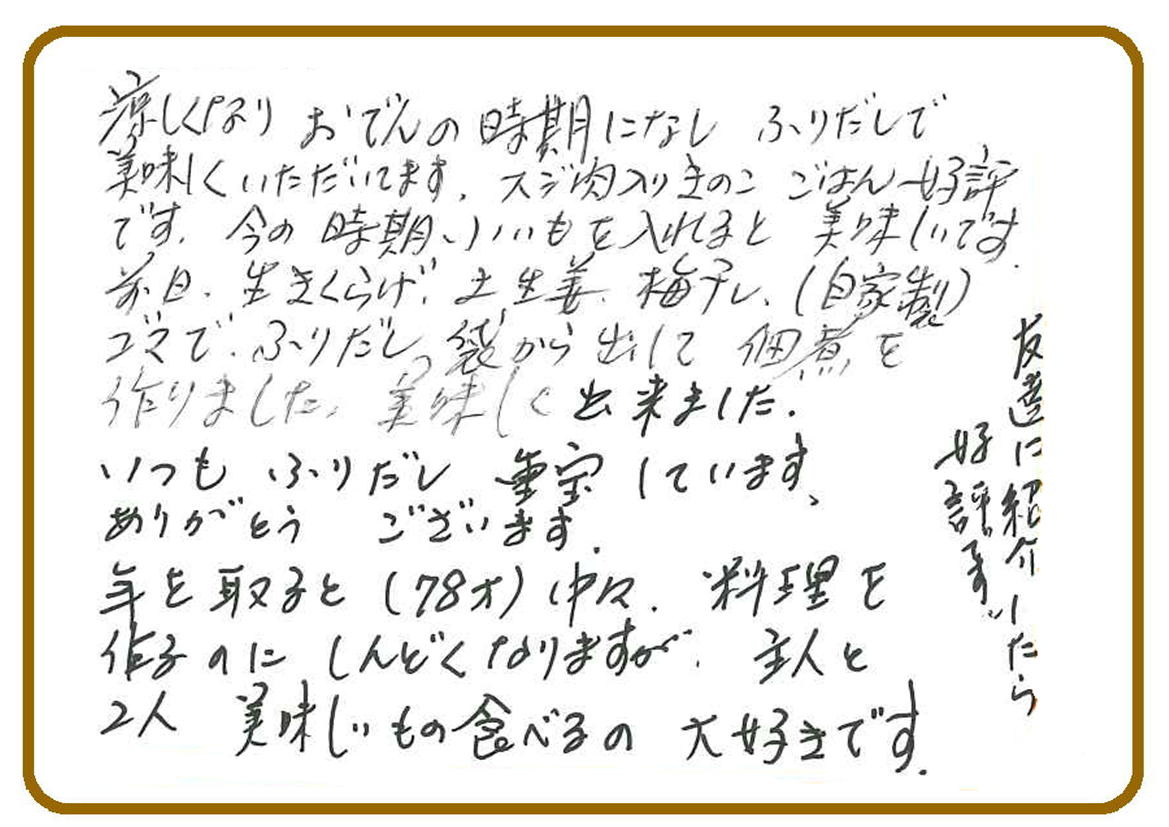 涼しくなり おでんの時期になし ふりだしで
美味しくいただいてます。スジ肉入りきのこ ごはん好評
です。今の時期、いもを入れると 美味しいです。
前日、生きくらげ、土生姜、梅干し、(自家製)
ゴマで、ふりだしの袋から出して 佃煮を
作りました。美味しく出来ました。
いつも ふりだし 重宝しています、
ありがとう ございます。
年を取ると(78才)中々、料理を
作るのに しんどくなりますが、主人と
2人 美味しいもの食べるの 大好きです。
友達に紹介したら
好評です。